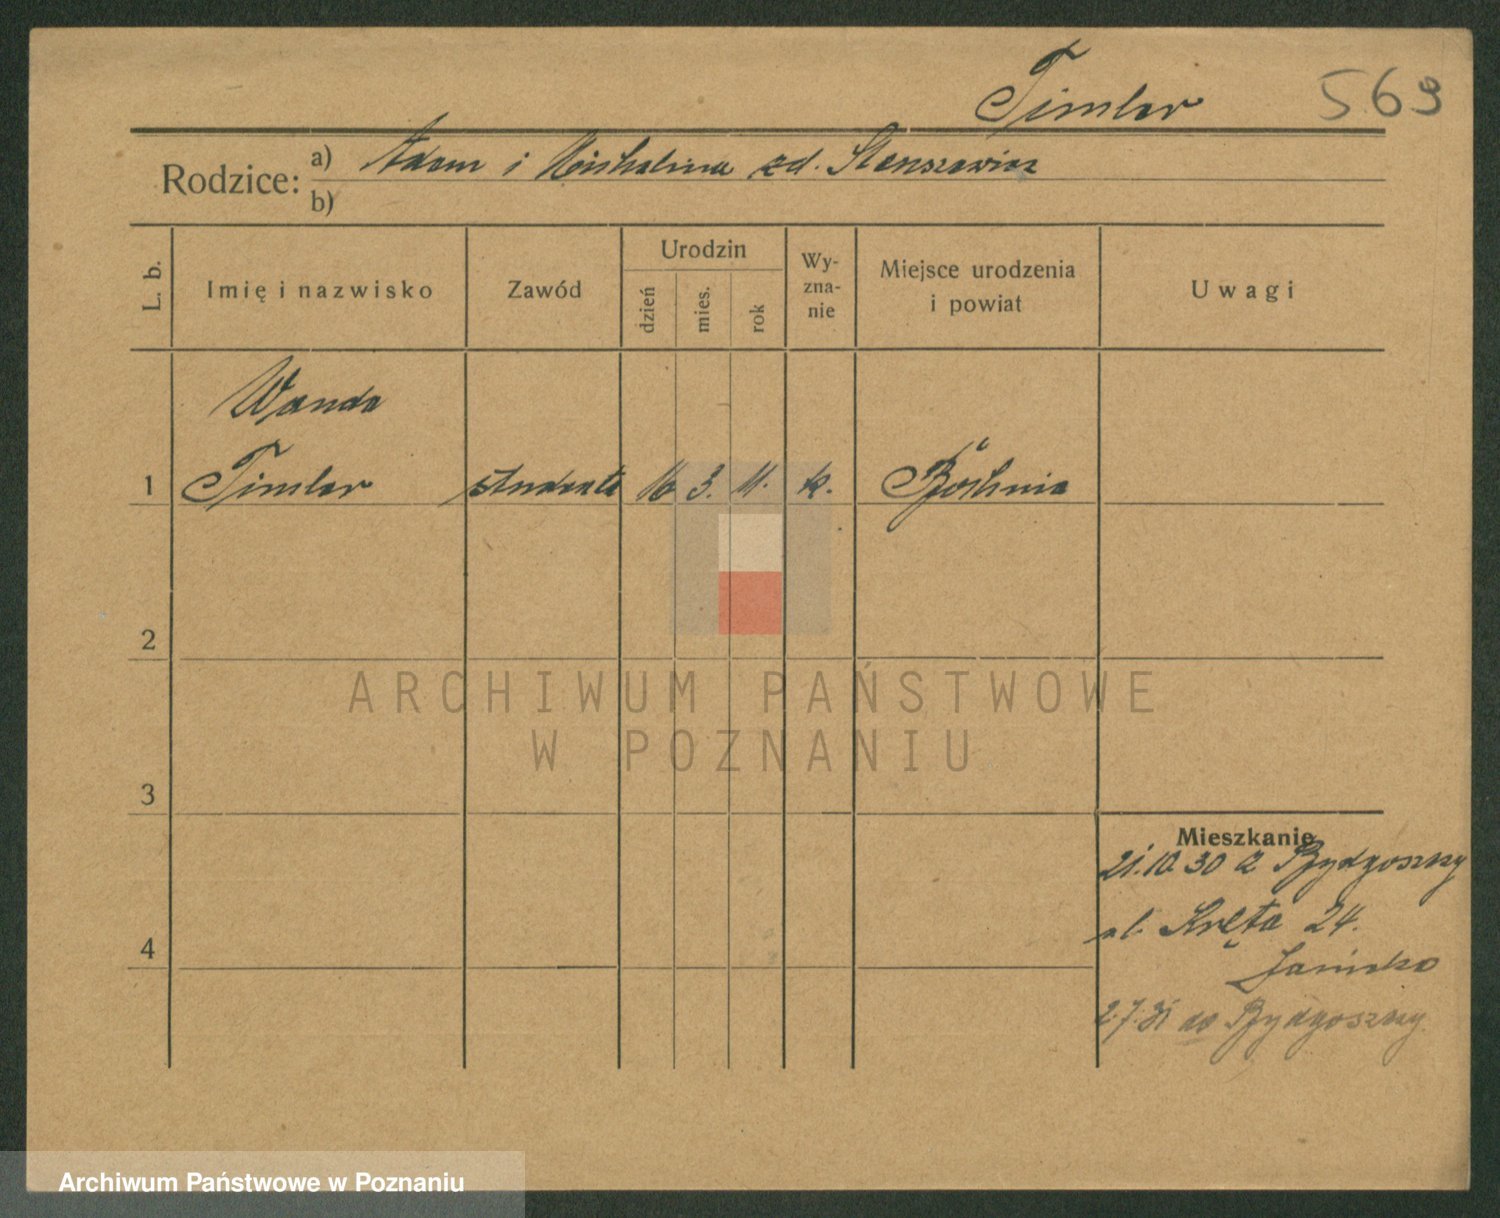 Timler 569
Rodzice: a) Adam i Michalina zd. Stenszewicz
b)
L. b. Imię i nazwisko Zawód Urodzin dzień mies. rok Wy-zna-nie Miejsce urodzenia i powiat Uwagi
Wanda
1 Timler studentk 16 3. 11. k. Bochnia
2
ARCHIWUM PAŃSTWOWE
W POZNANIU
3
Mieszkanie
21.10.30 z Bydgoszczy
ul. Kręta 24.
4
2.7.31 do Bydgoszczy
Archiwum Państwowe w Poznaniu